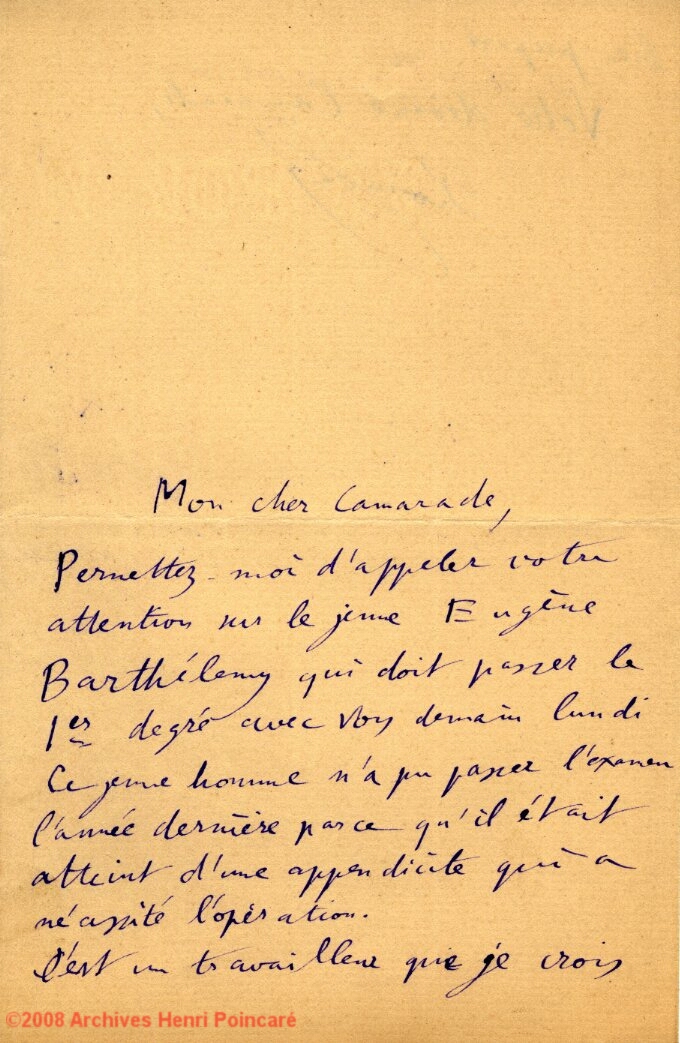 Mon cher Camarade,
Permettez-moi d'appeler votre
attention sur le jeune Eugène
Barthélemy qui doit passer le
1er degré avec vous demain lundi
Ce jeune homme n'a pu passer l'examen
l'année dernière parce qu'il était
atteint d'une appendicite qui a
nécessité l'opération.
C'est un travailleur que je crois
©2008 Archives Henri Poincaré